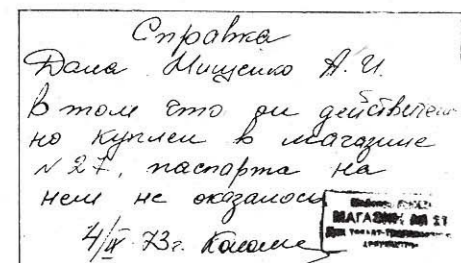 Справка
Дана Мищенко А.И.
в том что он действитель
но куплен в магазине
№ 27, паспарта на
нем не оказалось
4/IX 73г.
МАГАЗИН № 27